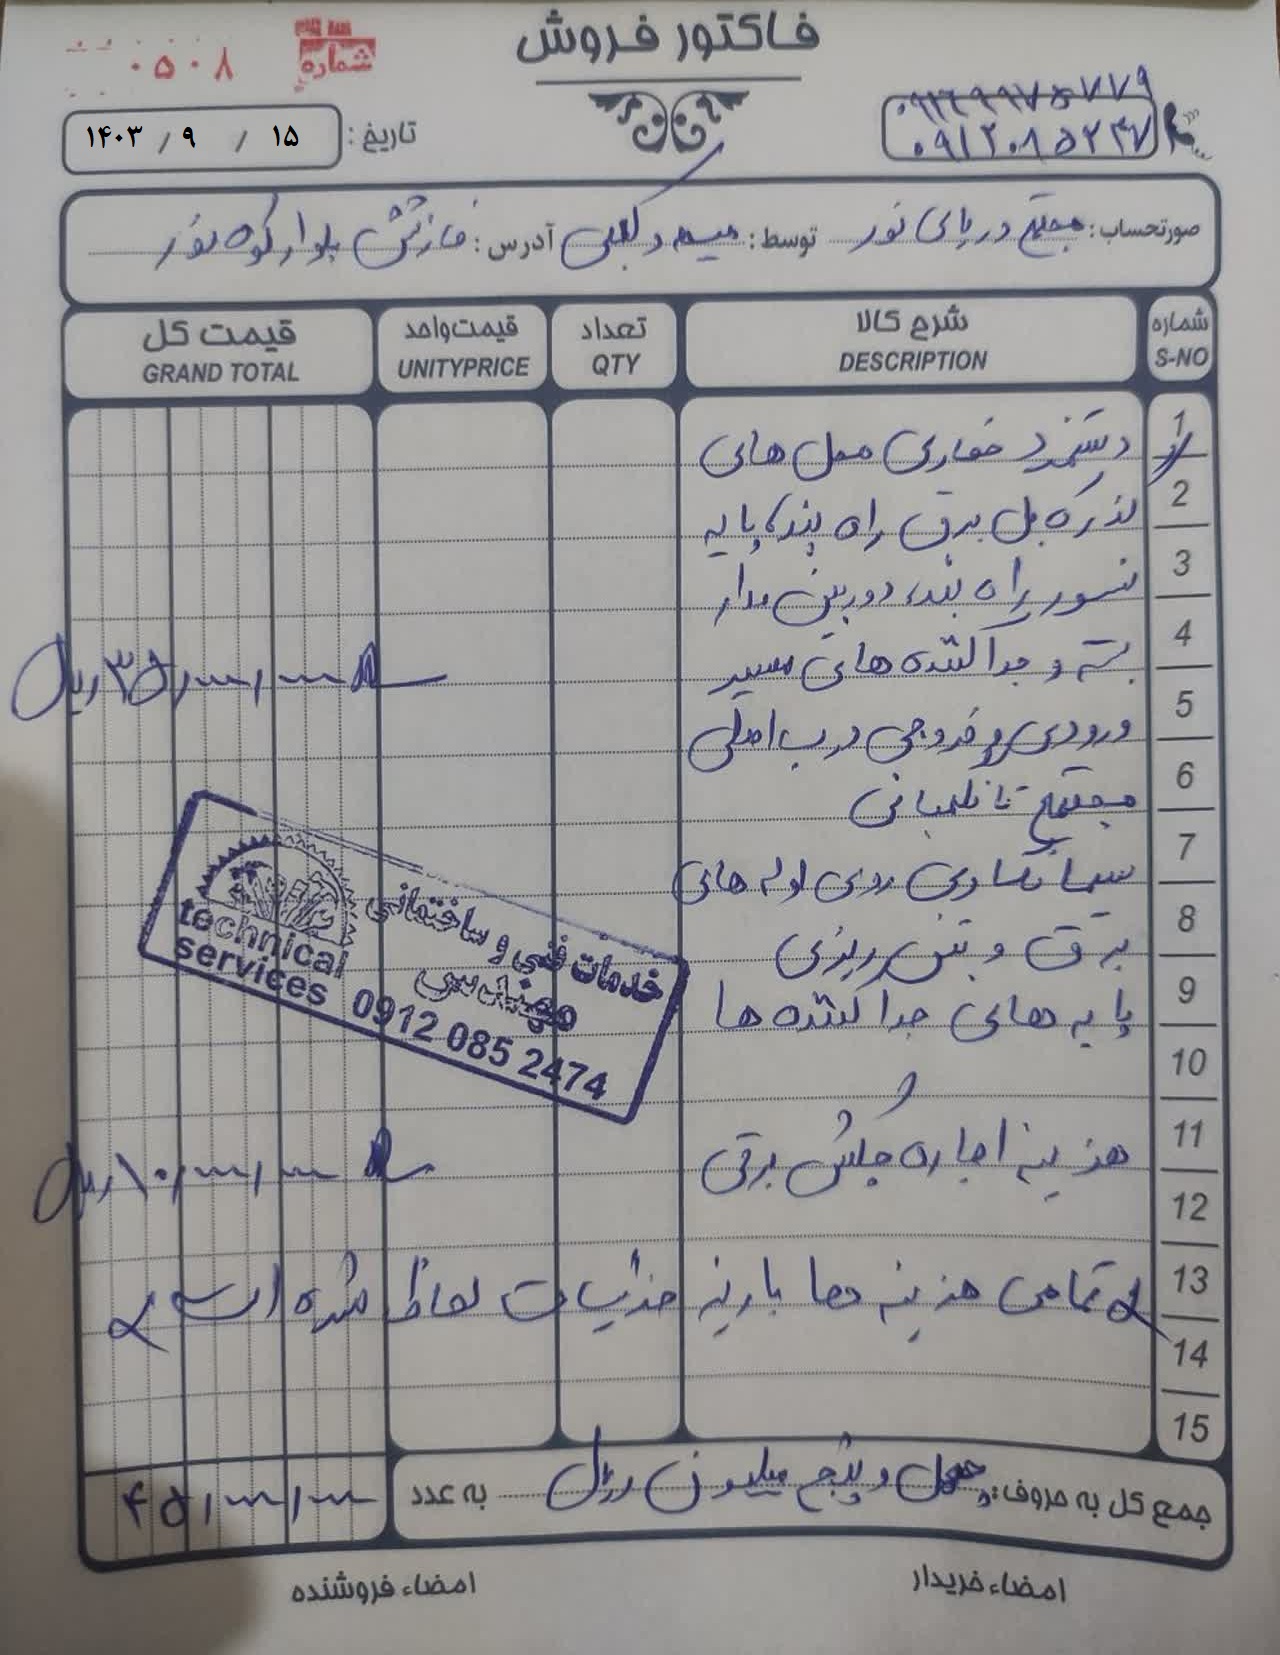 فاکتور فروش
شماره
۰۵۰۸
۰۹۱۲۰۸۵۲۴۷
تاریخ: ۱۵ / ۹ / ۱۴۰۳
صورتحساب: مجتمع دریای نور توسط: آدرس: فازشش بلوار کوه نور
شماره شرح کالا تعداد قیمت واحد قیمت کل
S-NO DESCRIPTION QTY UNITYPRICE GRAND TOTAL
1 دستمزد حفاری محل های
2 برق راه بند، پایه
3 سنسور راه بند، دوربین مدار
4 بسته و جداکننده های مسیر ۳۵/۰۰۰/۰۰۰ ریال
5 ورودی و خروجی درب اصلی
6 مجتمع تا نگهبانی
7 سیمانکاری روی لوله های
8 برق و بتن ریزی
9 پایه های جداکننده ها
10
11 هزینه اجاره چکش برقی ۱۰/۰۰۰/۰۰۰ ریال
12
13 تمامی هزینه ها با ریز جزئیات لحاظ شده است
14
15
خدمات فنی و ساختمانی
مهندسی
technical
services 0912 085 2474
جمع کل به حروف: چهل و پنج میلیون ریال به عدد ۴۵/۰۰۰/۰۰۰
امضاء خریدار امضاء فروشنده